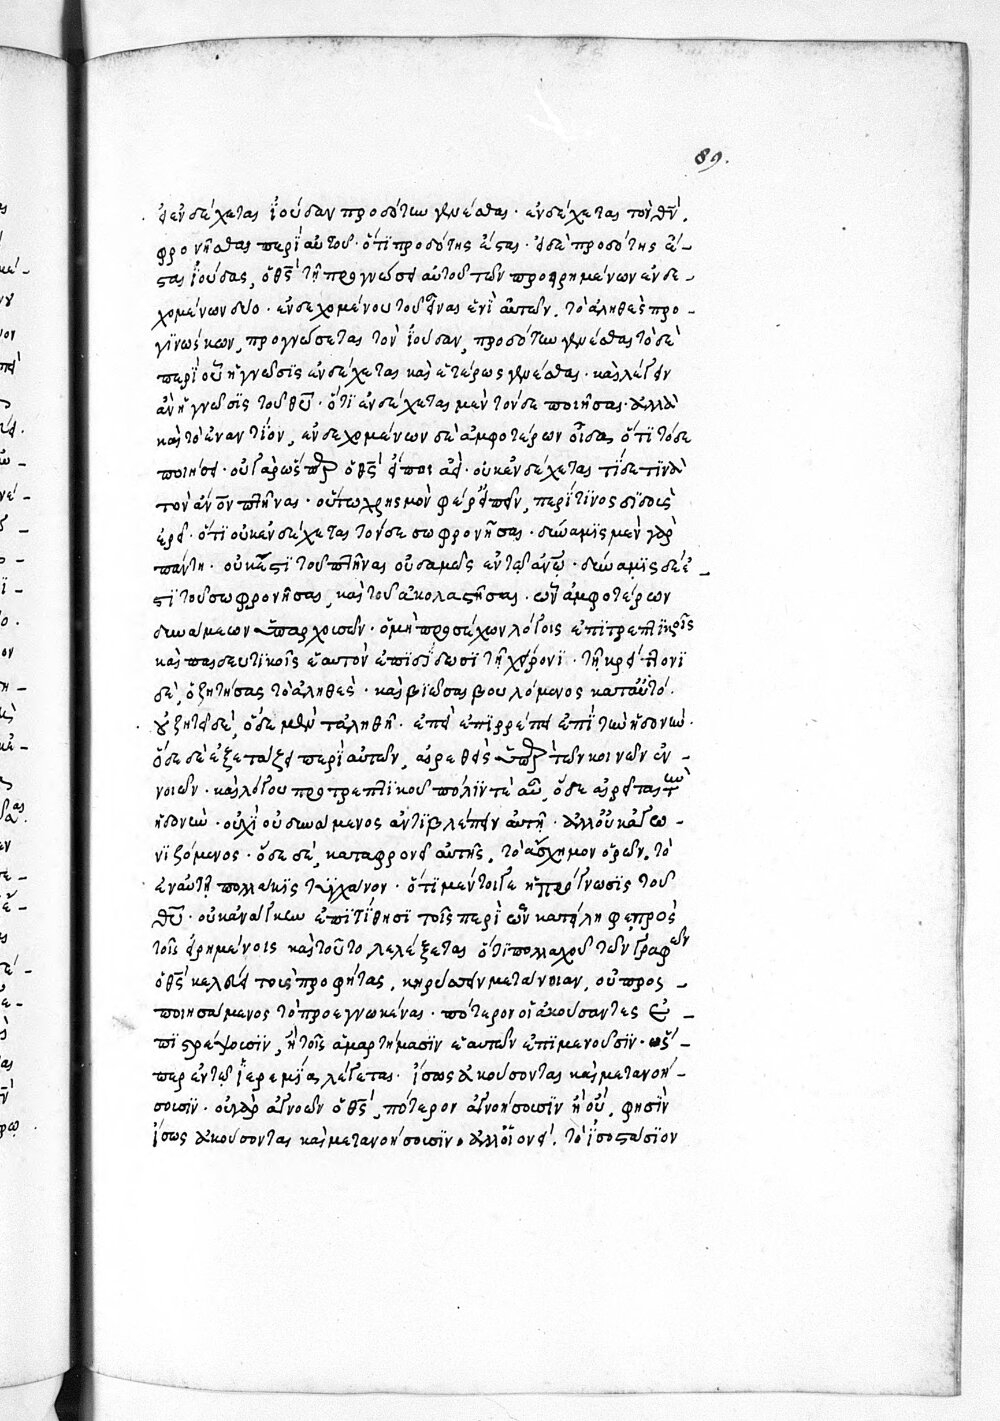 89.
εἰ ἐνδέχεται ἰούδαν προδότην γενέσθαι · ἐνδέχεται τὸν θν̄
φρονῆσαι περὶ αὐτοῦ · ὅτι προδότης ἔσται · εἰ δὲ προδότης ἔ-
σται ἰούδας, ὁ θς̄ τῇ προγνώσει αὐτοῦ τῶν προειρημένων ἐνδε-
χομένων δύο · ἐνδεχομένου τοῦ εἶναι ἑνὶ αὐτῶν, τὸ ἀληθὲς προ-
γινώσκων, προγνώσεται τὸν ἰούδαν, προδότην γενέσθαι τὸ δὲ
περὶ οὗ ἡ γνῶσις ἐνδέχεται καὶ ἑτέρως γενέσθαι · καὶ λέγει
ἂν ἡ γνῶσις τοῦ θῡ · ὅτι ἐνδέχεται μὲν τόνδε ποιῆσαι · ἀλλὰ
καὶ τὸ ἐναντίον, ἐνδεχομένων δὲ ἀμφοτέρων οἶδα, ὅτι τόδε
ποιήσει · οὐ γὰρ ὥσπερ ὁ θς̄ εἴποι ἄν · οὐκ ἐνδέχεται τόδε τινὰ
τὸν ἄνον πτῆναι · οὕτω χρησμὸν φέρ εἰπεῖν, περί τινος διδοὺς
ἐρεῖ · ὅτι οὐκ ἐνδέχεται τόνδε σωφρονῆσαι · δύναμις μὲν γὰρ
πάντη · οὐκ ἔστι τοῦ πτῆναι οὐδαμῶς ἐν τῷ ἀνῷ · δύναμις δὲ ἔ-
στι τοῦ σωφρονῆσαι, καὶ τοῦ ἀκολαστῆσαι · ὧν ἀμφοτέρων
δυνάμεων ὑπαρχουσῶν · ὁ μὴ προσέχων λόγοις ἐπιτρεπτικοῖς
καὶ παιδευτικοῖς ἑαυτὸν ἐπιδίδωσι τῇ χείρονι · τῇ κρείττονι
δὲ, ὁ ζητήσας τὸ ἀληθὲς · καὶ βιῶσαι βουλόμενος κατ αὐτό ·
οὐ ζητεῖ δὲ, ὅδε μὲν τἀληθῆ · ἐπεὶ ἐπιρρέπει ἐπὶ τὴν ἡδονήν ·
ὅδε δὲ ἐξετάζει περὶ αὐτῶν, αἱρεθεὶς ὑπὸ τῶν κοινῶν ἐν-
νοιῶν · καὶ λόγου προτρεπτικοῦ πάλιν τὲ αὖ, ὅδε αἱρεῖται τὴν
ἡδονὴν · οὐχὶ οὐ δυνάμενος ἀντιβλέπειν αὐτῇ · ἀλλ οὐκ ἀγω-
νιζόμενος · ὅδε δὲ, καταφρονεῖ αὐτῆς, τὸ ἄσχημον ὁρῶν, τὸ
ἐν αὐτῇ πολλάκις τυγχάνον · ὅτι μέντοιγε ἡ πρόγνωσις τοῦ
θῡ · οὐκ ἀνάγκην ἐπιτίθησι τοῖς περὶ ὧν κατείληφε πρὸς
τοῖς εἰρημένοις καὶ τοῦτο λελέξεται ὅτι πολλαχοῦ τῶν γραφῶν
ὁ θς̄ κελεύει τοὺς προφήτας, κηρύσσειν μετάνοιαν, οὐ προσ-
ποιησάμενος τὸ προεγνωκέναι · πότερον οἱ ἀκούσαντες ἐ-
πιστρέψουσιν, ἢ τοῖς ἁμαρτήμασιν ἑαυτῶν ἐπιμενοῦσιν · ὥσ-
περ ἐν τῷ ἰερεμίᾳ λέγεται · ἴσως ἀκούσονται καὶ μετανοή-
σουσιν · οὐ γὰρ ἀγνοῶν ὁ θς̄, πότερον ἀκούσουσιν ἢ οὔ, φησὶν
ἴσως ἀκούσονται καὶ μετανοήσουσιν · ἀλλ οἱονεὶ · τὸ ἰσοστάσιον